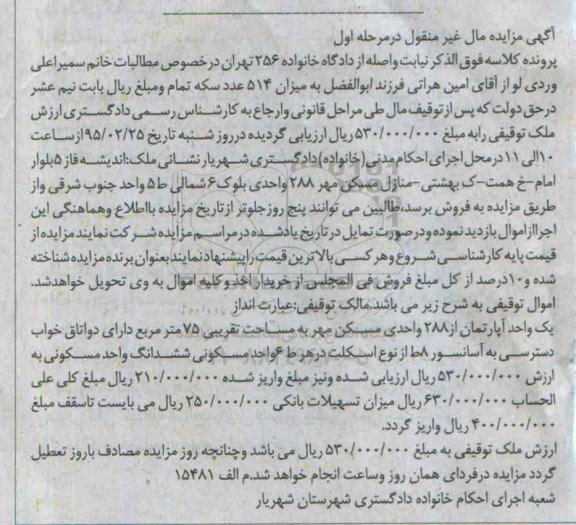 آگهی مزایده مال غیر منقول درمرحله اول
پرونده کلاسه فوق الذکر نیابت واصله از دادگاه خانواده ۲۵۶ تهران درخصوص مطالبات خانم سمیراعلی
وردی لو از آقای امین هراتی فرزند ابوالفضل به میزان ۵۱۴ عدد سکه تمام ومبلغ ریال بابت نیم عشر
درحق دولت که پس از توقیف مال طی مراحل قانونی وارجاع به کارشناس رسمی دادگستری ارزش
ملک توقیفی رابه مبلغ ۵۳۰/۰۰۰/۰۰۰ ریال ارزیابی گردیده درروز شنبه تاریخ ۹۵/۰۲/۲۵ ازساعت
۱۰الی ۱۱ درمحل اجرای احکام مدنی(خانواده)دادگستری شهریار نشانی ملک:اندیشه فاز ۵بلوار
امام-خ همت-ک بهشتی-منازل مسکن مهر ۲۸۸ واحدی بلوک ۶ شمالی ط ۵ واحد جنوب شرقی واز
طریق مزایده به فروش برسد،طالبین می توانند پنج روز جلوتر ازتاریخ مزایده بااطلاع وهماهنگی این
اجرا ازاموال بازدید نموده ودرصورت تمایل درتاریخ یادشده درمراسم مزایده شرکت نمایند مزایده از
قیمت پایه کارشناسی شروع وهرکسی بالاترین قیمت راپیشنهاد نمایند بعنوان برنده مزایده شناخته
شده و۱۰درصد از کل مبلغ فروش فی المجلس از خریدار اخذ وکلیه اموال به وی تحویل خواهدشد.
اموال توقیفی به شرح زیر می باشد.مالک توقیفی:عبارت انداز
یک واحد آپارتمان از ۲۸۸ واحدی مسکن مهر به مساحت تقریبی ۷۵ متر مربع دارای دواتاق خواب
دسترسی به آسانسور ۸ط از نوع اسکلت درهر ط ۶واحد مسکونی ششدانگ واحد مسکونی به
ارزش ۵۳۰/۰۰۰/۰۰۰ ریال ارزیابی شده ونیز مبلغ واریز شده ۲۱۰/۰۰۰/۰۰۰ ریال مبلغ کلی علی
الحساب ۶۳۰/۰۰۰/۰۰۰ ریال میزان تسهیلات بانکی ۲۵۰/۰۰۰/۰۰۰ ریال می بایست تاسقف مبلغ
۴۰۰/۰۰۰/۰۰۰ ریال واریز گردد.
ارزش ملک توقیفی به مبلغ ۵۳۰/۰۰۰/۰۰۰ ریال می باشد وچنانچه روز مزایده مصادف باروز تعطیل
گردد مزایده درفردای همان روز وساعت انجام خواهد شد.م الف ۱۵۴۸۱
شعبه اجرای احکام خانواده دادگستری شهرستان شهریار